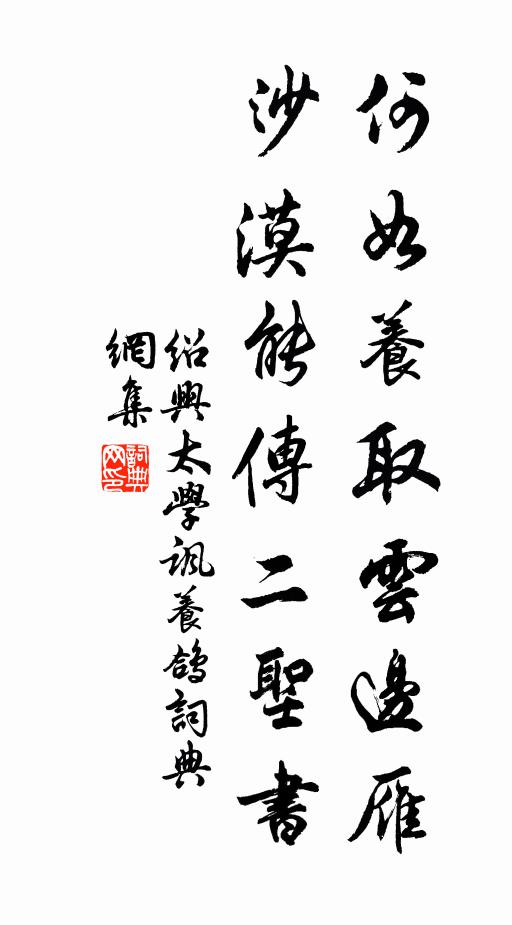 何如養取雲邊雁
沙漠能傳二聖書
紹興太學諷養鴿詞典
網集
詞典網印